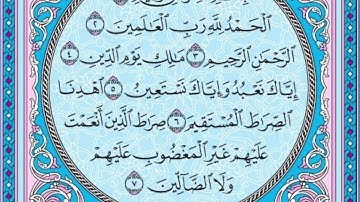 ٱلۡحَمۡدُ لِلَّهِ رَبِّ ٱلۡعَٰلَمِينَ ٢
ٱلرَّحۡمَٰنِ ٱلرَّحِيمِ ٣ مَٰلِكِ يَوۡمِ ٱلدِّينِ ٤
إِيَّاكَ نَعۡبُدُ وَإِيَّاكَ نَسۡتَعِينُ ٥ ٱهۡدِنَا
ٱلصِّرَٰطَ ٱلۡمُسۡتَقِيمَ ٦ صِرَٰطَ ٱلَّذِينَ أَنۡعَمۡتَ
عَلَيۡهِمۡ غَيۡرِ ٱلۡمَغۡضُوبِ عَلَيۡهِمۡ
وَلَا ٱلضَّآلِّينَ ٧